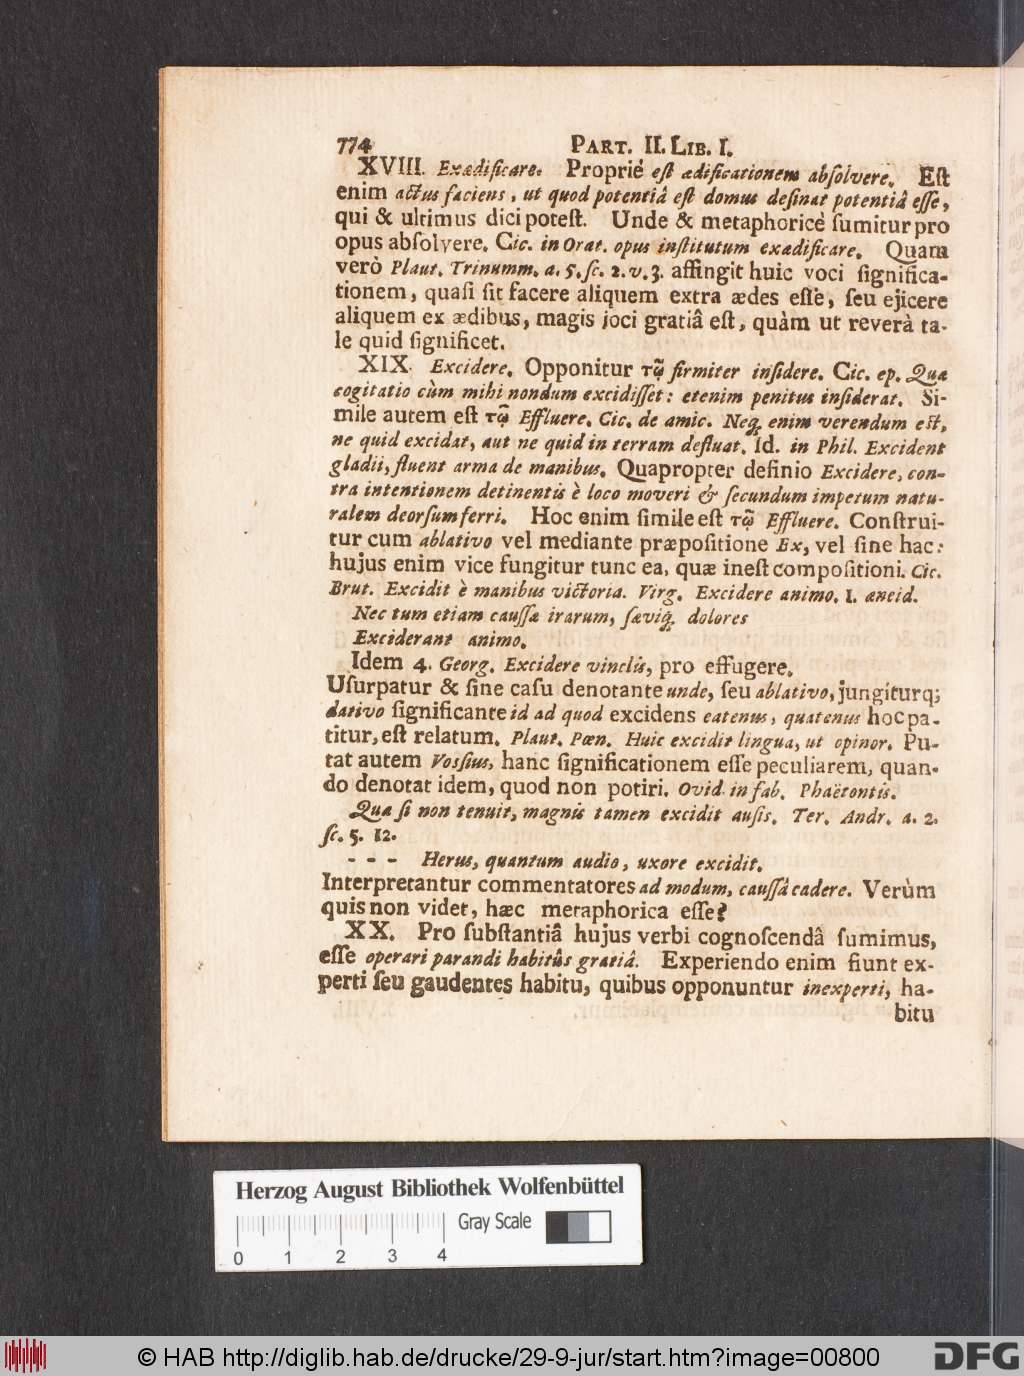 774 PART. II. LIB. I.
XVIII. Exædificare. Propriè eſt ædificationem abſolvere. Eſt
enim actus faciens, ut quod potentiâ eſt domus deſinat potentiâ eſſe,
qui & ultimus dici poteſt. Unde & metaphoricè ſumitur pro
opus abſolvere. Cic. in Orat. opus inſtitutum exædificare. Quam
verò Plaut. Trinumm. a. 5. ſc. 2. v. 3. affingit huic voci ſignifica-
tionem, quaſi ſit facere aliquem extra ædes eſſe, ſeu ejicere
aliquem ex ædibus, magis joci gratiâ eſt, quàm ut reverà ta-
le quid ſignificet.
XIX. Excidere. Opponitur τῷ firmiter inſidere. Cic. ep. Quæ
cogitatio cùm mihi nondum excidiſſet: etenim penitus inſiderat. Si-
mile autem eſt τῷ Effluere. Cic. de amic. Neq; enim verendum eſt,
ne quid excidat, aut ne quid in terram defluat. Id. in Phil. Excident
gladii, fluent arma de manibus. Quapropter definio Excidere, con-
tra intentionem detinentis è loco moveri & ſecundum impetum natu-
ralem deorſum ferri. Hoc enim ſimile eſt τῷ Effluere. Conſtrui-
tur cum ablativo vel mediante præpoſitione Ex, vel ſine hac:
hujus enim vice fungitur tunc ea, quæ ineſt compoſitioni. Cic.
Brut. Excidit è manibus victoria. Virg. Excidere animo. 1. æneid.
Nec tum etiam cauſſæ irarum, ſæviq; dolores
Exciderant animo.
Idem 4. Georg. Excidere vinclis, pro effugere.
Uſurpatur & ſine caſu denotante unde, ſeu ablativo, jungiturq;
dativo ſignificante id ad quod excidens eatenus, quatenus hoc pa-
titur, eſt relatum. Plaut. Pœn. Huic excidit lingua, ut opinor. Pu-
tat autem Voſſius, hanc ſignificationem eſſe peculiarem, quan-
do denotat idem, quod non potiri. Ovid. in fab. Phaëtontis.
Quæ ſi non tenuit, magnis tamen excidit auſis. Ter. Andr. a. 2.
ſc. 5. 12.
- - - Herus, quantum audio, uxore excidit.
Interpretantur commentatores ad modum, cauſſâ cadere. Verùm
quis non videt, hæc metaphorica eſſe?
XX. Pro ſubſtantiâ hujus verbi cognoſcendâ ſumimus,
eſſe operari parandi habitûs gratiâ. Experiendo enim fiunt ex-
perti ſeu gaudentes habitu, quibus opponuntur inexperti, ha-
bitu
Herzog August Bibliothek Wolfenbüttel
Gray Scale
0 1 2 3 4
© HAB http://diglib.hab.de/drucke/29-9-jur/start.htm?image=00800
DFG